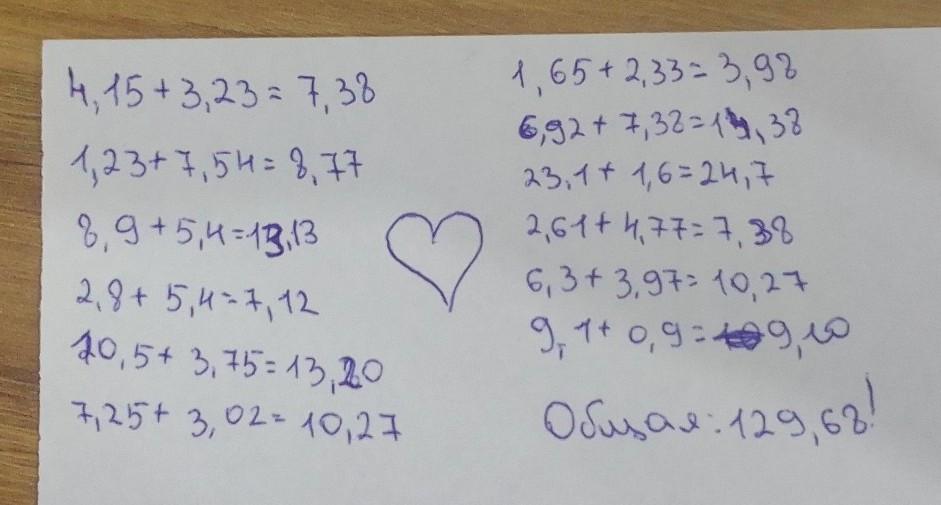 4,15+3,23=7,38
1,23+7,54=8,77
8,9+5,4=13,13
2,8+5,4=7,12
10,5+3,75=13,20
7,25+3,02=10,27
1,65+2,33=3,98
6,92+7,38=14,38
23,1+1,6=24,7
2,61+4,77=7,38
6,3+3,97=10,27
9,1+0,9=9,10
Общая:129,68!